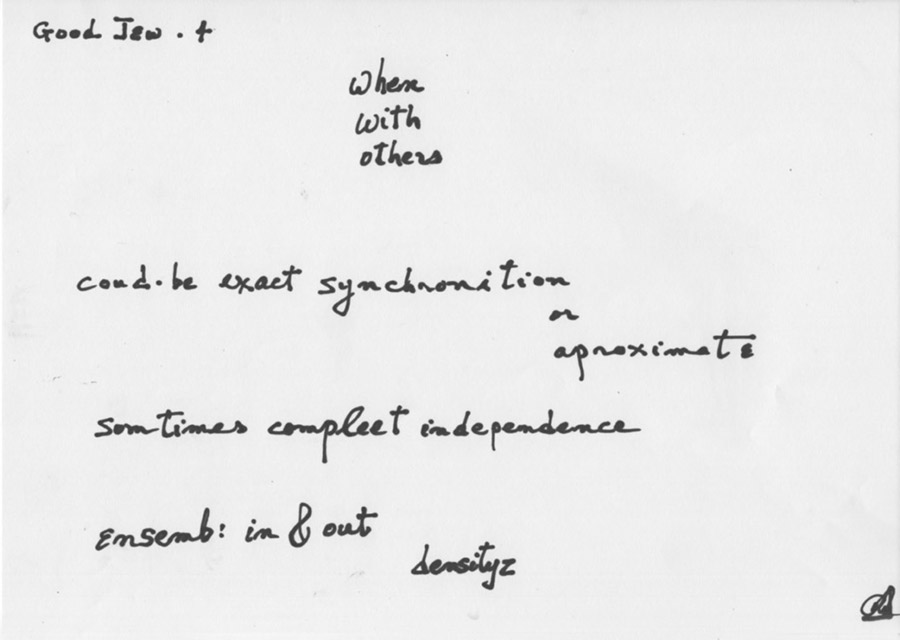 Good Jew. t
when
with
others
coud.be exact synchronition
or
aproximate
somtimes compleet independence
ensemb: in & out
densityz